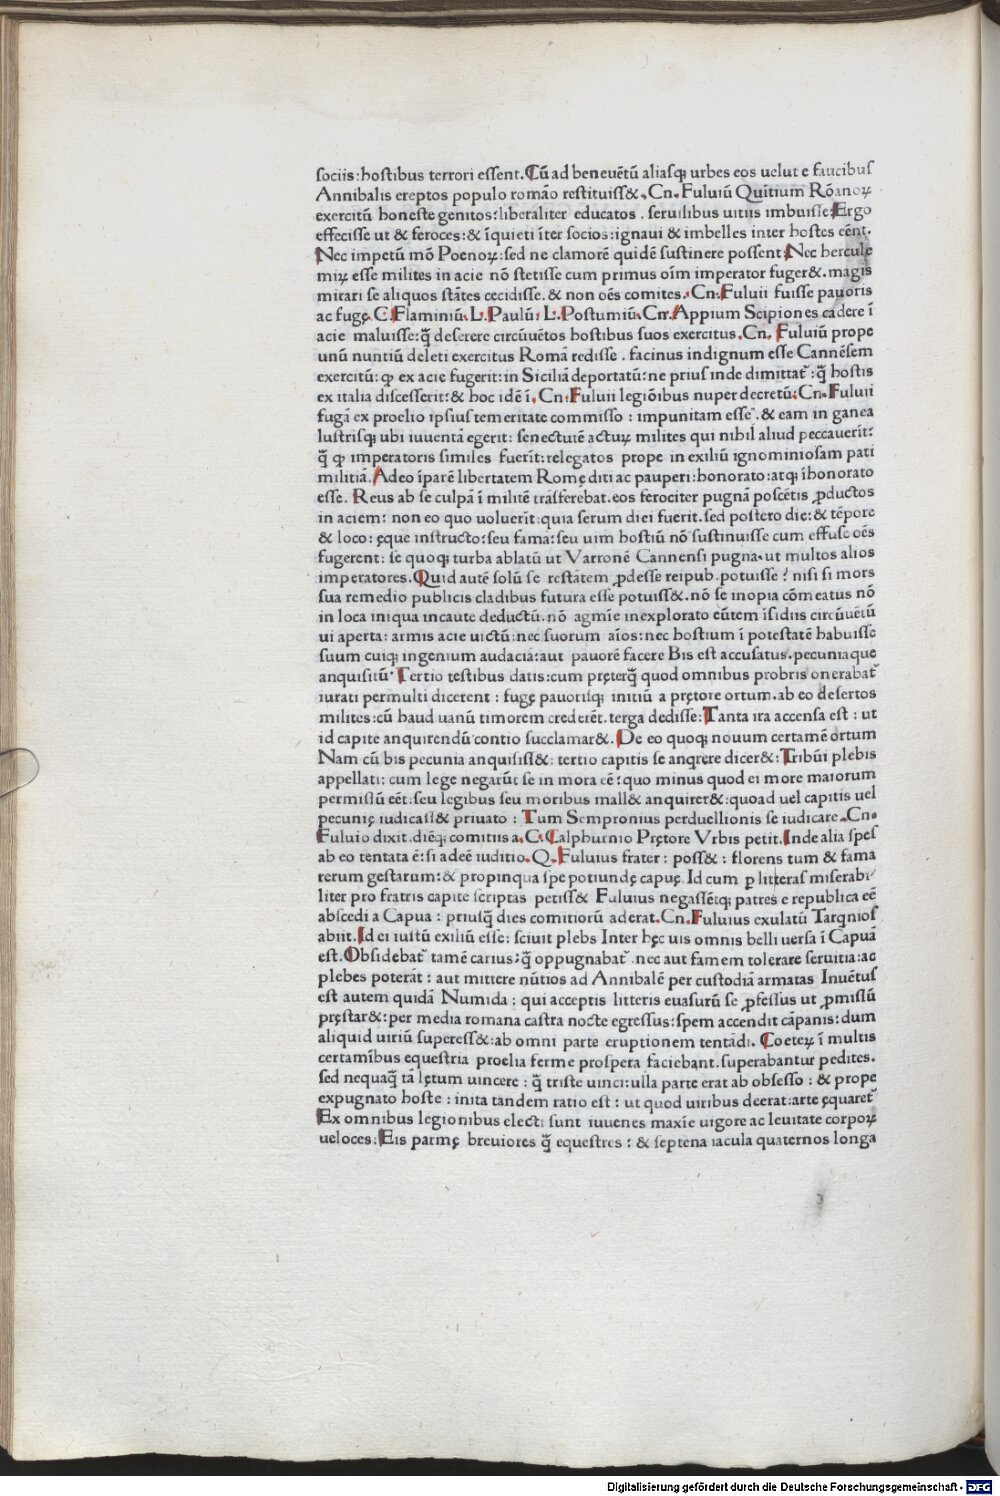 sociis:hostibus terrori essent.Cū ad beneuētū aliasq; urbes eos uelut e faucibus
Annibalis ereptos populo romāo restituiss&.Cn.Fuluiū Quītium Rōanoꝝ
exercitū honeste genitos:liberaliter educatos . seruilibus uitiis imbuisse.Ergo
effecisse ut & feroces:& īquieti īter socios:ignaui & imbelles inter hostes eēnt.
Nec impetū mō Poenoꝝ:sed ne clamorē quidē sustinere possent Nec hercule
miꝝ esse milites in acie nō stetisse cum primus oīm imperator fuger&.magis
mirari se aliquos stātes cecidisse.& non oēs comites.Cn.Fuluii fuisse pauoris
ac fugę.C.Flaminiū.L.Paulū:L.Postumiū.Cn.Appium Scipiones cadere ī
acie maluisse:q̄ deserere circūuētos hostibus suos exercitus.Cn. Fuluiū prope
unū nuntiū deleti exercitus Romā redisse . facinus indignum esse Cannēsem
exercitū:ꝙ ex acie fugerit:in Siciliā deportatū:ne prius inde dimittat̄:q̄ hostis
ex italia discesserit:& hoc idē ī.Cn.Fuluii legiōibus nuper decretū:Cn.Fuluii
fugā ex proelio ipsius temeritate commisso : impunitam esse . & eam in ganea
lustrisq; ubi iuuentā egerit: senectutē actuꝝ milites qui nihil aliud peccauerīt:
q̄ ꝙ imperatoris similes fuerīt:relegatos prope in exiliū ignominiosam pati
militiā.Adeo īparē libertatem Romę diti ac pauperi:honorato:atq; īhonorato
esse. Reus ab se culpā ī militē trāsferebat.eos ferociter pugnā poscētis ꝓductos
in aciem: non eo quo uoluerīt:quia serum diei fuerit.sed postero die:& tēpore
& loco:ęque instructo:seu fama:seu uim hostiū nō sustinuisse cum effuse oēs
fugerent: se quoq; turba ablatū ut Varronē Cannensi pugna.ut multos alios
imperatores.Quid autē solū se restātem ꝓdesse reipub.potuisse? nisi si mors
sua remedio publicis cladibus futura esse potuiss&.nō se inopia cōmeatus nō
in loca iniqua incaute deductū.nō agmīe inexplorato eūtem īsidiis circūuētū
ui aperta:armis acie uictū:nec suorum aīos:nec hostium ī potestatē habuisse
suum cuiq; ingenium audaciā:aut pauorē facere Bis est accusatus.pecuniaque
anquisitū.Tertio testibus datis:cum pręterq̄ quod omnibus probris onerabat̄
iurati permulti dicerent : fugę pauorisq; initiū a pretore ortum.ab eo desertos
milites:cū haud uanū timorem crederēt.terga dedisse:Tanta ira accensa est : ut
id capite anquirendū contio succlamar&.De eo quoq; nouum certamē ortum
Nam cū bis pecunia anquisiss&: tertio capitis se anqrere dicer&:Tribūi plebis
appellati: cum lege negarūt se in mora cē:quo minus quod ei more maiorum
permissū eēt.seu legibus seu moribus mall& anquirer&:quoad uel capitis uel
pecunię iudicass& priuato : Tum Sempronius perduellionis se iudicare.Cn.
Fuluio dixit.diēq; comitiis a.C.Calphurnio Prętore Vrbis petit.Inde alia spes
ab eo tentata ē:si adeē iuditio.Q.Fuluius frater: poss&: florens tum & fama
rerum gestarum:& propinqua spe potiundę capuę.Id cum ꝑ litteras miserabi
liter pro fratris capite scriptas petiss& Fuluius negassētq; patres e republica eē
abscedi a Capua : priusq̄ dies comitiorū aderat.Cn.Fuluius exulatū Tarqnios
abiit.Id ei iustū exiliū esse: sciuit plebs Inter hęc uis omnis belli uersa ī Capuā
est.Obsidebat̄ tamē carius:q̄ oppugnabat̄ .nec aut famem tolerare seruitia:ac
plebes poterāt : aut mittere nūtios ad Annibalē per custodiā armatas Inuētus
est autem quidā Numida : qui acceptis litteris euasurū se ꝓfessus ut ꝓmissū
pręstar&:per media romana castra nocte egressus:spem accendit cāpanis:dum
aliquid uiriū superess&:ab omni parte eruptionem tentādi. Coeteꝝ ī multis
certamībus equestria proelia ferme prospera faciebant.superabantur pedites.
sed nequaq̄ tā lętum uincere : q̄ triste uinci:ulla parte erat ab obsesso : & prope
expugnato hoste : inita tandem ratio est : ut quod uiribus deerat:arte ęquaret̄
Ex omnibus legionibus electi sunt iuuenes maxīe uigore ac leuitate corpoꝝ
ueloces:Eis parmę breuiores q̄ equestres : & septena iacula quaternos longa
Digitalisierung gefördert durch die Deutsche Forschungsgemeinschaft - DFG